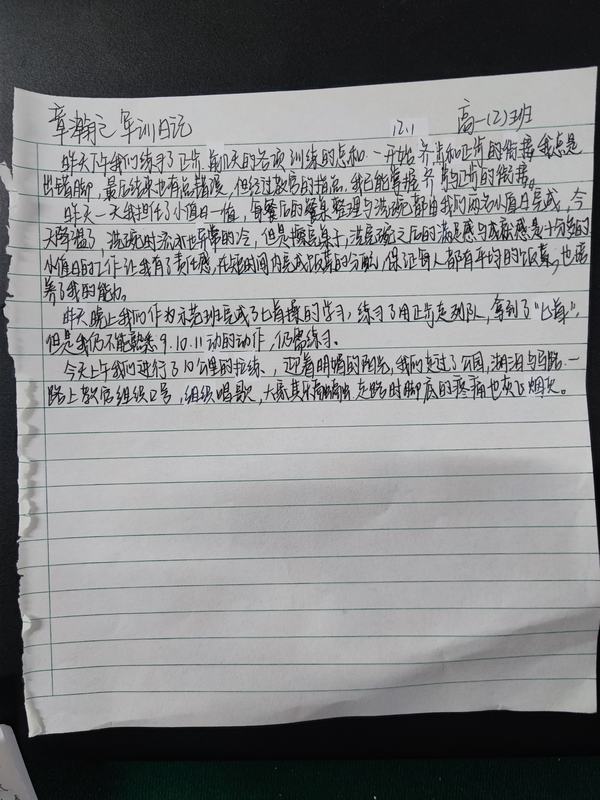 章瀚元 军训日记 12.1 高一(2)班
昨天下午我们练习了正步,前几天的各项训练的总和.一开始齐步和正步的衔接我总是
出错脚,最后结束也有点错误,但经过教官的指点,我已能掌握齐步与正步的衔接。
昨天一天我担任了小值日一值,每餐后的餐桌整理与洗碗都由我们两名小值日完成,今
天降温了,洗碗时流水也异常的冷,但是擦完桌子,洗完碗之后的满足感与成就感是十分多的
小值日的工作让我有了责任感,在短时间内完成饭菜的分配,保证每人都有平均的饭菜,也培
养了我的能力。
昨天晚上我们作为示范班完成了匕首操的学习,练习了用正步走到队,拿到了“匕首”,
但是我仍不能熟悉9.10.11动的动作,仍需练习。
今天上午我们进行了10公里的拉练,迎着明媚的阳光,我们走过了公园,湖泊与马路.一
路上教官组织口号,组织唱歌,大家其乐融融,走路时脚底的疼痛也灰飞烟灭。